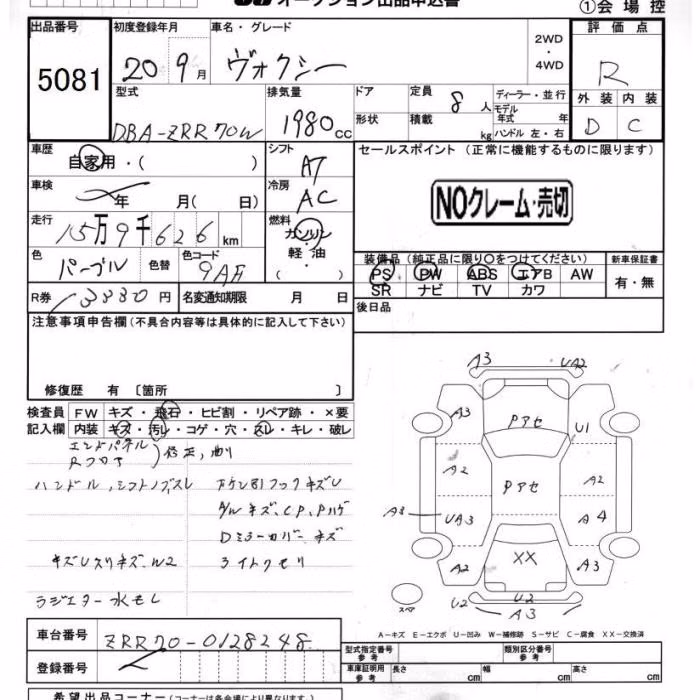 オークション出品申込書
①会場控
出品番号
5081
初度登録年月
20 9月
車名・グレード
ヴォクシー
2WD
・
4WD
評価点
R
外装 内装
D C
型式
DBA-ZRR70W
排気量
1980cc
ドア
形状
定員 8人
積載 kg
ディーラー・並行
モデル年式 年
ハンドル 左・右
車歴
自家用・( )
シフト
AT
セールスポイント (正常に機能するものに限ります)
NOクレーム・売切
車検
年 月( 日)
冷房
AC
走行
15万9千626km
燃料
ガソリン
・
軽油
・
( )
色
パープル
色替
色コード
9AH
装備品 (純正品に限り○をつけてください)
PS PW ABS エアB AW
SR ナビ TV カワ
新車保証書
有・無
R券
13880円
名変通知期限 月 日
後日品
注意事項申告欄(不具合内容等は具体的に記入して下さい)
修復歴 有 〔箇所 〕
検査員
記入欄
FW キズ・飛石・ヒビ割・リペア跡・×要
内装 キズ・汚レ・コゲ・穴・スレ・キレ・破レ
エンドパネル
Rフロア
修正、曲り
ハンドル、シフトノブスレ
下ケン引フックキズU
A/Wキズ、CP、Pハゲ
Dミラーカバーキズ
キズUスリキズ、W2
ライトクモリ
ラジエター水モレ
A3
UA2
A3
Pアセ
U1
A2
Pアセ
A2
A3
UA3
A4
A2
XX
A3
スペア
U2
U2
A3
A―キズ E―エクボ U―凹み W―補修跡 S―サビ C―腐食 XX―交換済
車台番号
ZRR70-0128248
登録番号
型式指定番号
参考
類別区分番号
参考
車庫証明用
参考
長さ cm
幅 cm
高さ cm
希望出品コーナー(コーナーは各会場により異なります。)